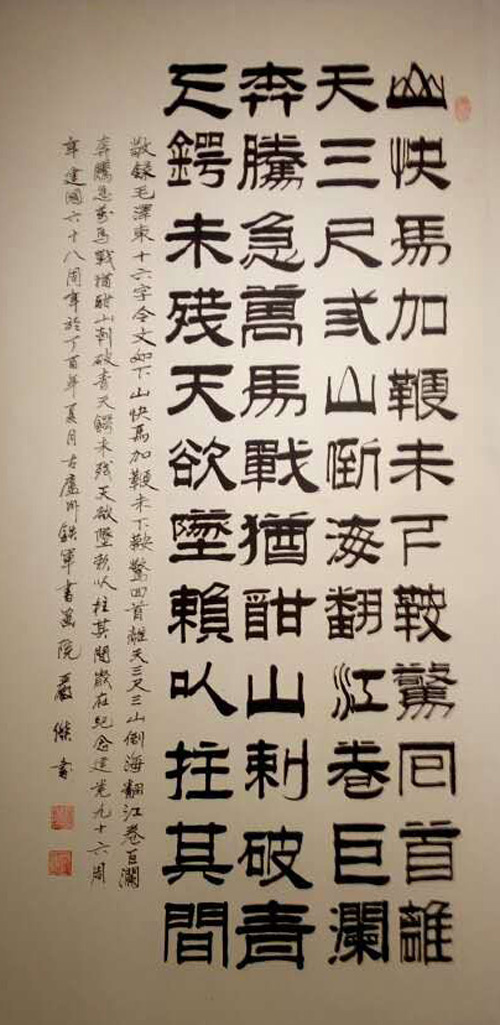 山快馬加鞭未下鞍驚回首離
天三尺弎山倒海翻江卷巨瀾
奔騰急萬馬戰猶酣山刺破青
天鍔未残天欲墜賴以拄其間
敬録毛澤東十六字令文如下山快馬加鞭未下鞍驚回首離天三又三山倒海翻江卷巨瀾
奔騰急萬馬戰猶酣山刺破青天鍔未残天欲墜賴以柱其間歲在紀念建党九十六周
年建國六十八周年於丁酉年夏月古廬州鉄軍書畫院嚴傑書